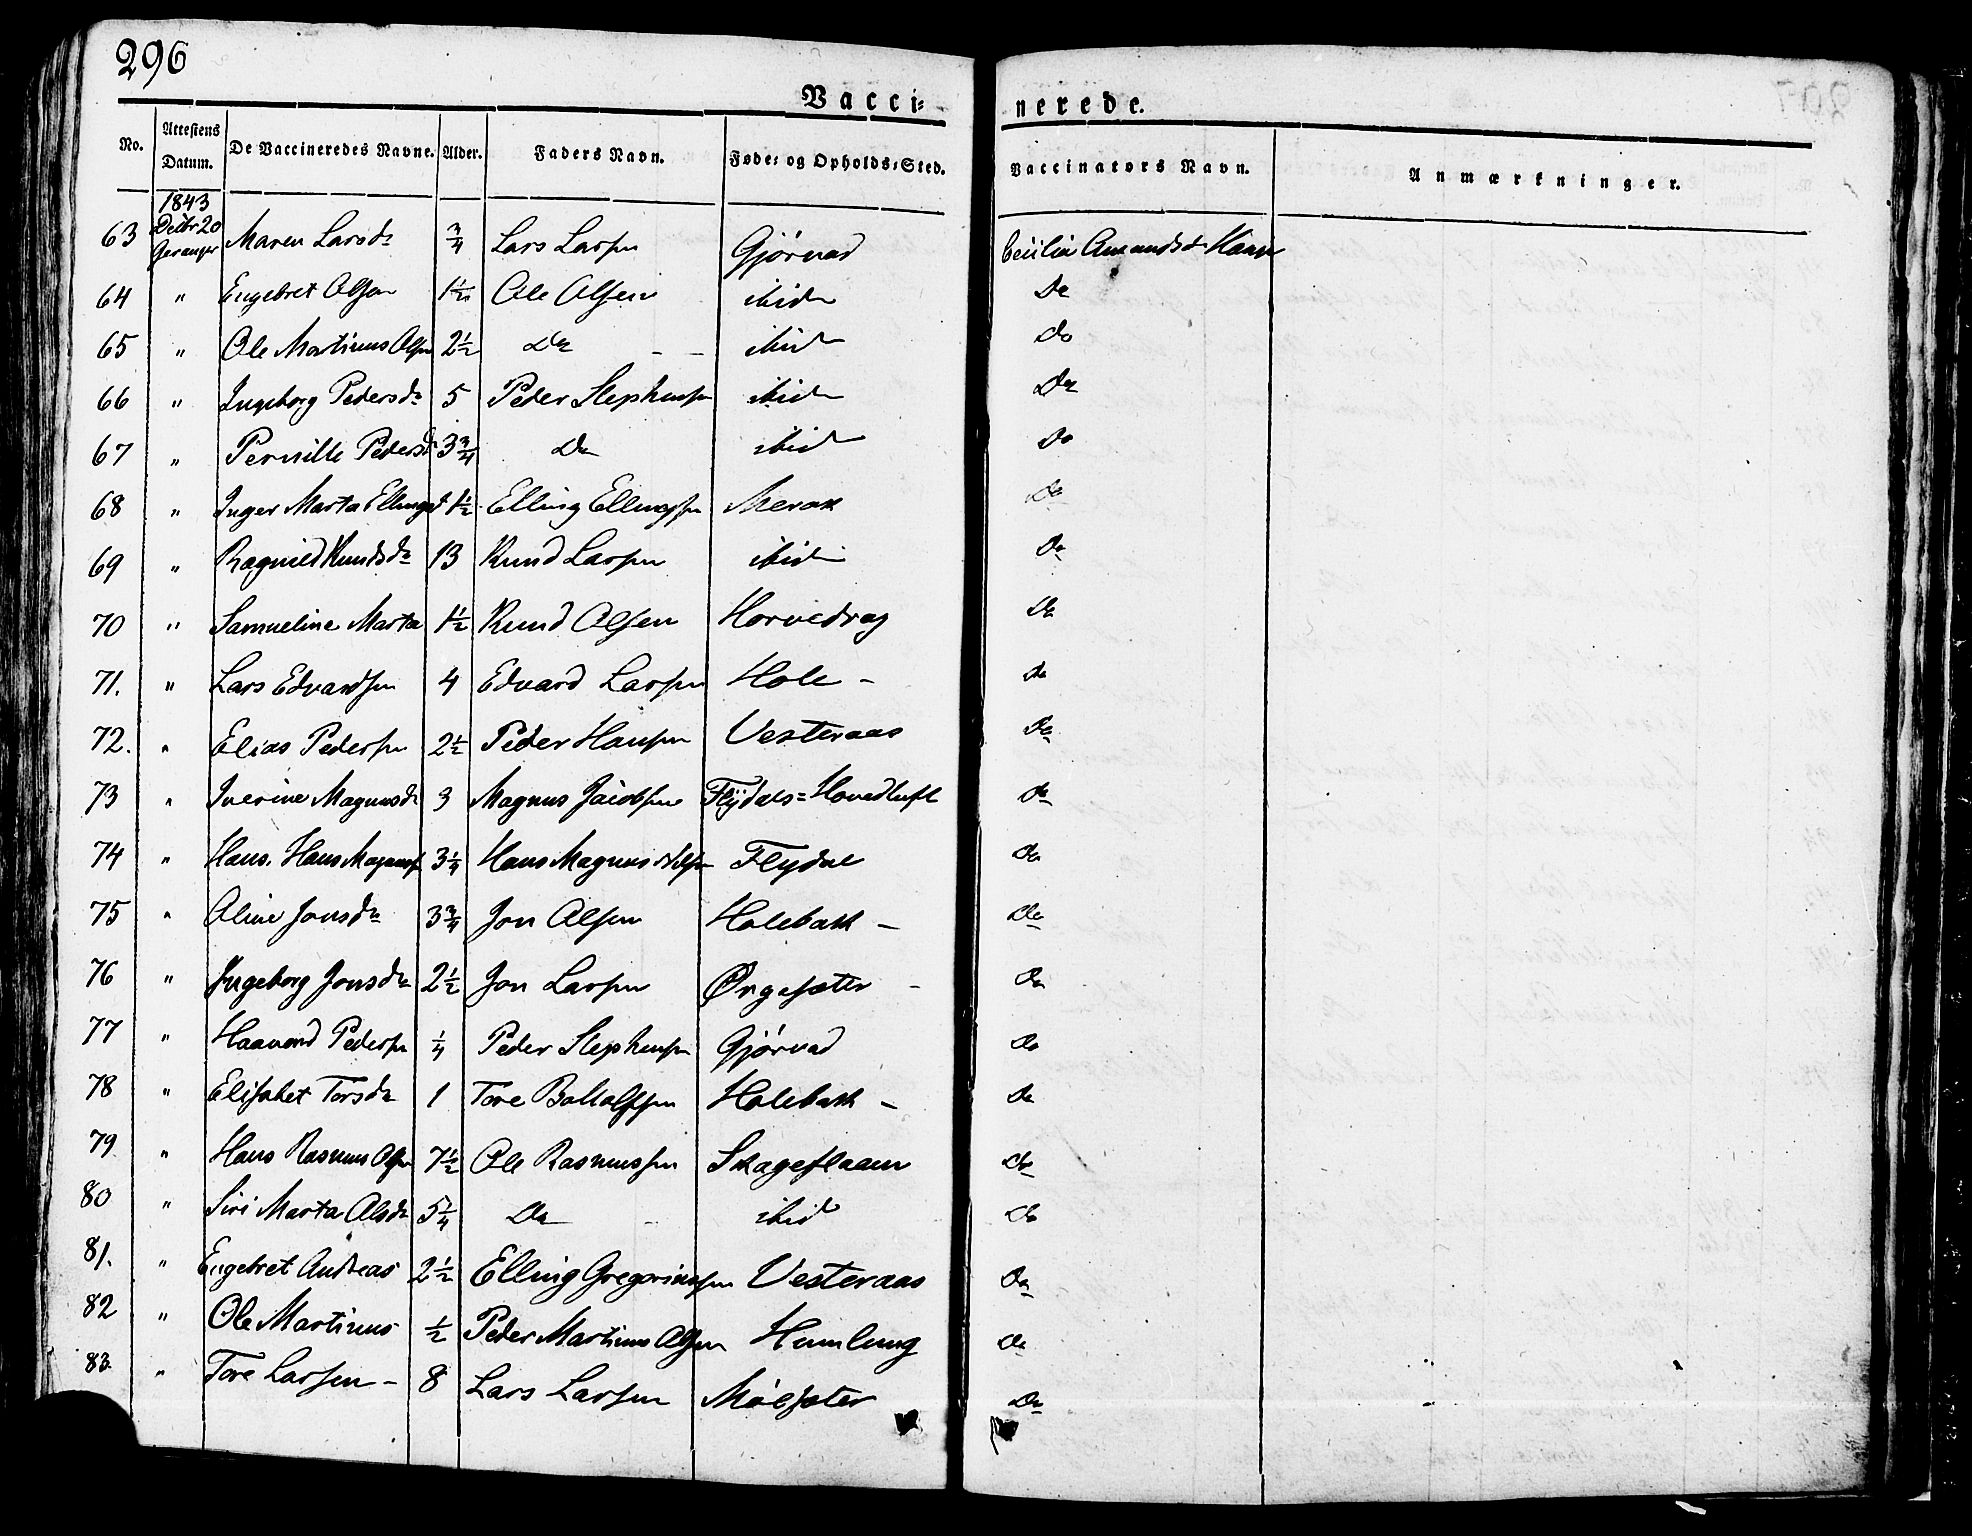 296
Vaccinerede.
No. Attestens Datum. De Vaccineredes Navne. Alder. Faders Navn. Føde- og Opholds-Sted. Vaccinators Navn. Anmærkninger.
1843
Decbr 20
Geranger
63 Maren Larsdr 3/4 Lars Larsen Gjørvad Cecilia Amundsd
64 " Engebret Olsen 1 1/2 Ole Olsen ibid Do
65 " Ole Martinus Olsen 2 1/2 Do - - ibid Do
66 " Ingeborg Pedersdr 5 Peder Stephensen ibid Do
67 " Pernille Pedersd 3 3/4 Do ibid Do
68 " Inger Marta Ellingsd 1 1/2 Elling Ellingsen Merok Do
69 " Ragnild Knudsdr 13 Knud Larsen ibid Do
70 " Samueline Marta 1 1/2 Knud Olsen Horvedrag Do
71. " Lars Edvardsen 4 Edvard Larsen Hole - Do
72. " Elias Pedersen 2 1/2 Peder Hansen Vesteraas Do
73 " Iverine Magnusdr 3 Magnus Jacobsen Flydals= Do
74 " Hans. Hans Magnussen 3 1/4 Hans Magnus Flydal Do
75 " Oline Jonsdr 3 3/4 Jon Olsen Holebakk - Do
76 " Ingeborg Jonsdr 2 1/2 Jon Larsen Ørgesæter - Do
77 " Haavard Pedersen 1/4 Peder Stephensen Gjørvad Do
78 " Elisabet Torsdr 1 Tore Holebakk - Do
79 " Hans Rasmus Olsen 7 1/2 Ole Rasmussen Skageflaaen Do
80 " Siri Marta Olsdr 5 1/4 Do - ibid Do
81. " Engebret Andreas 2 1/2 Elling Gregoriussen Vesteraas Do
82 " Ole Martinus 1/2 Peder Martinus Olsen Humlung Do
83. " Tore Larsen - 8 Lars Larsen Mølsæter Do